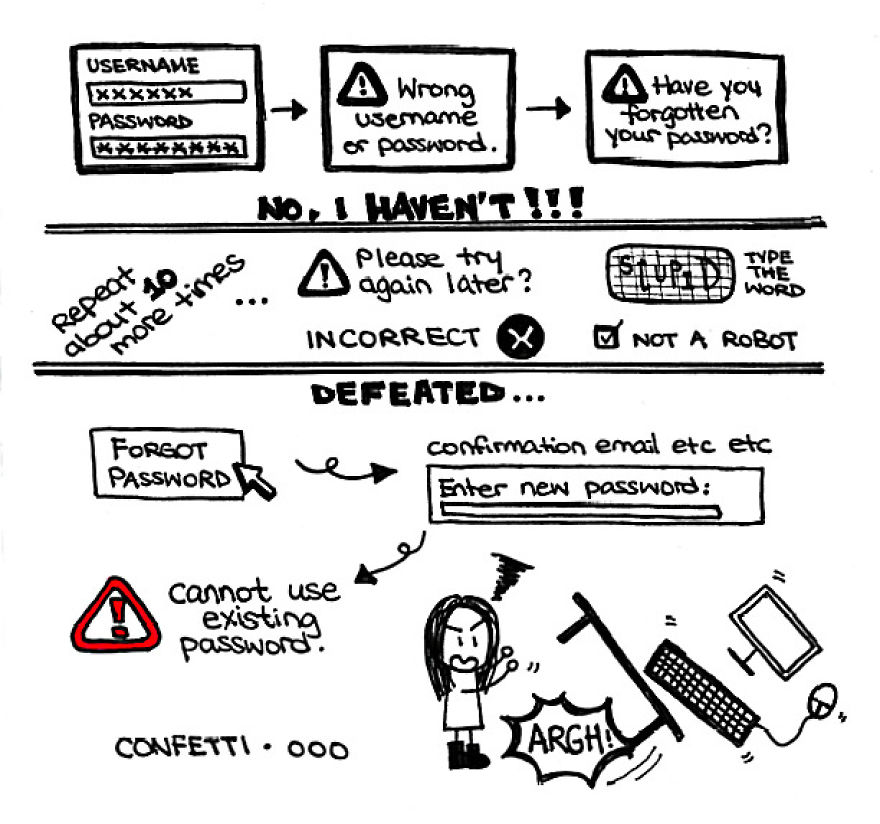 USERNAME
xxxxxx
PASSWORD
********
Wrong
username
or password.
Have you
forgotten
your password?
NO, I HAVEN'T!!!
Repeat
about 10
more times ...
Please try
again later?
INCORRECT X
STUPID
TYPE
THE
WORD
NOT A ROBOT
DEFEATED...
FORGOT
PASSWORD
confirmation email etc etc
Enter new password:
cannot use
existing
password.
ARGH!
CONFETTI · OOO